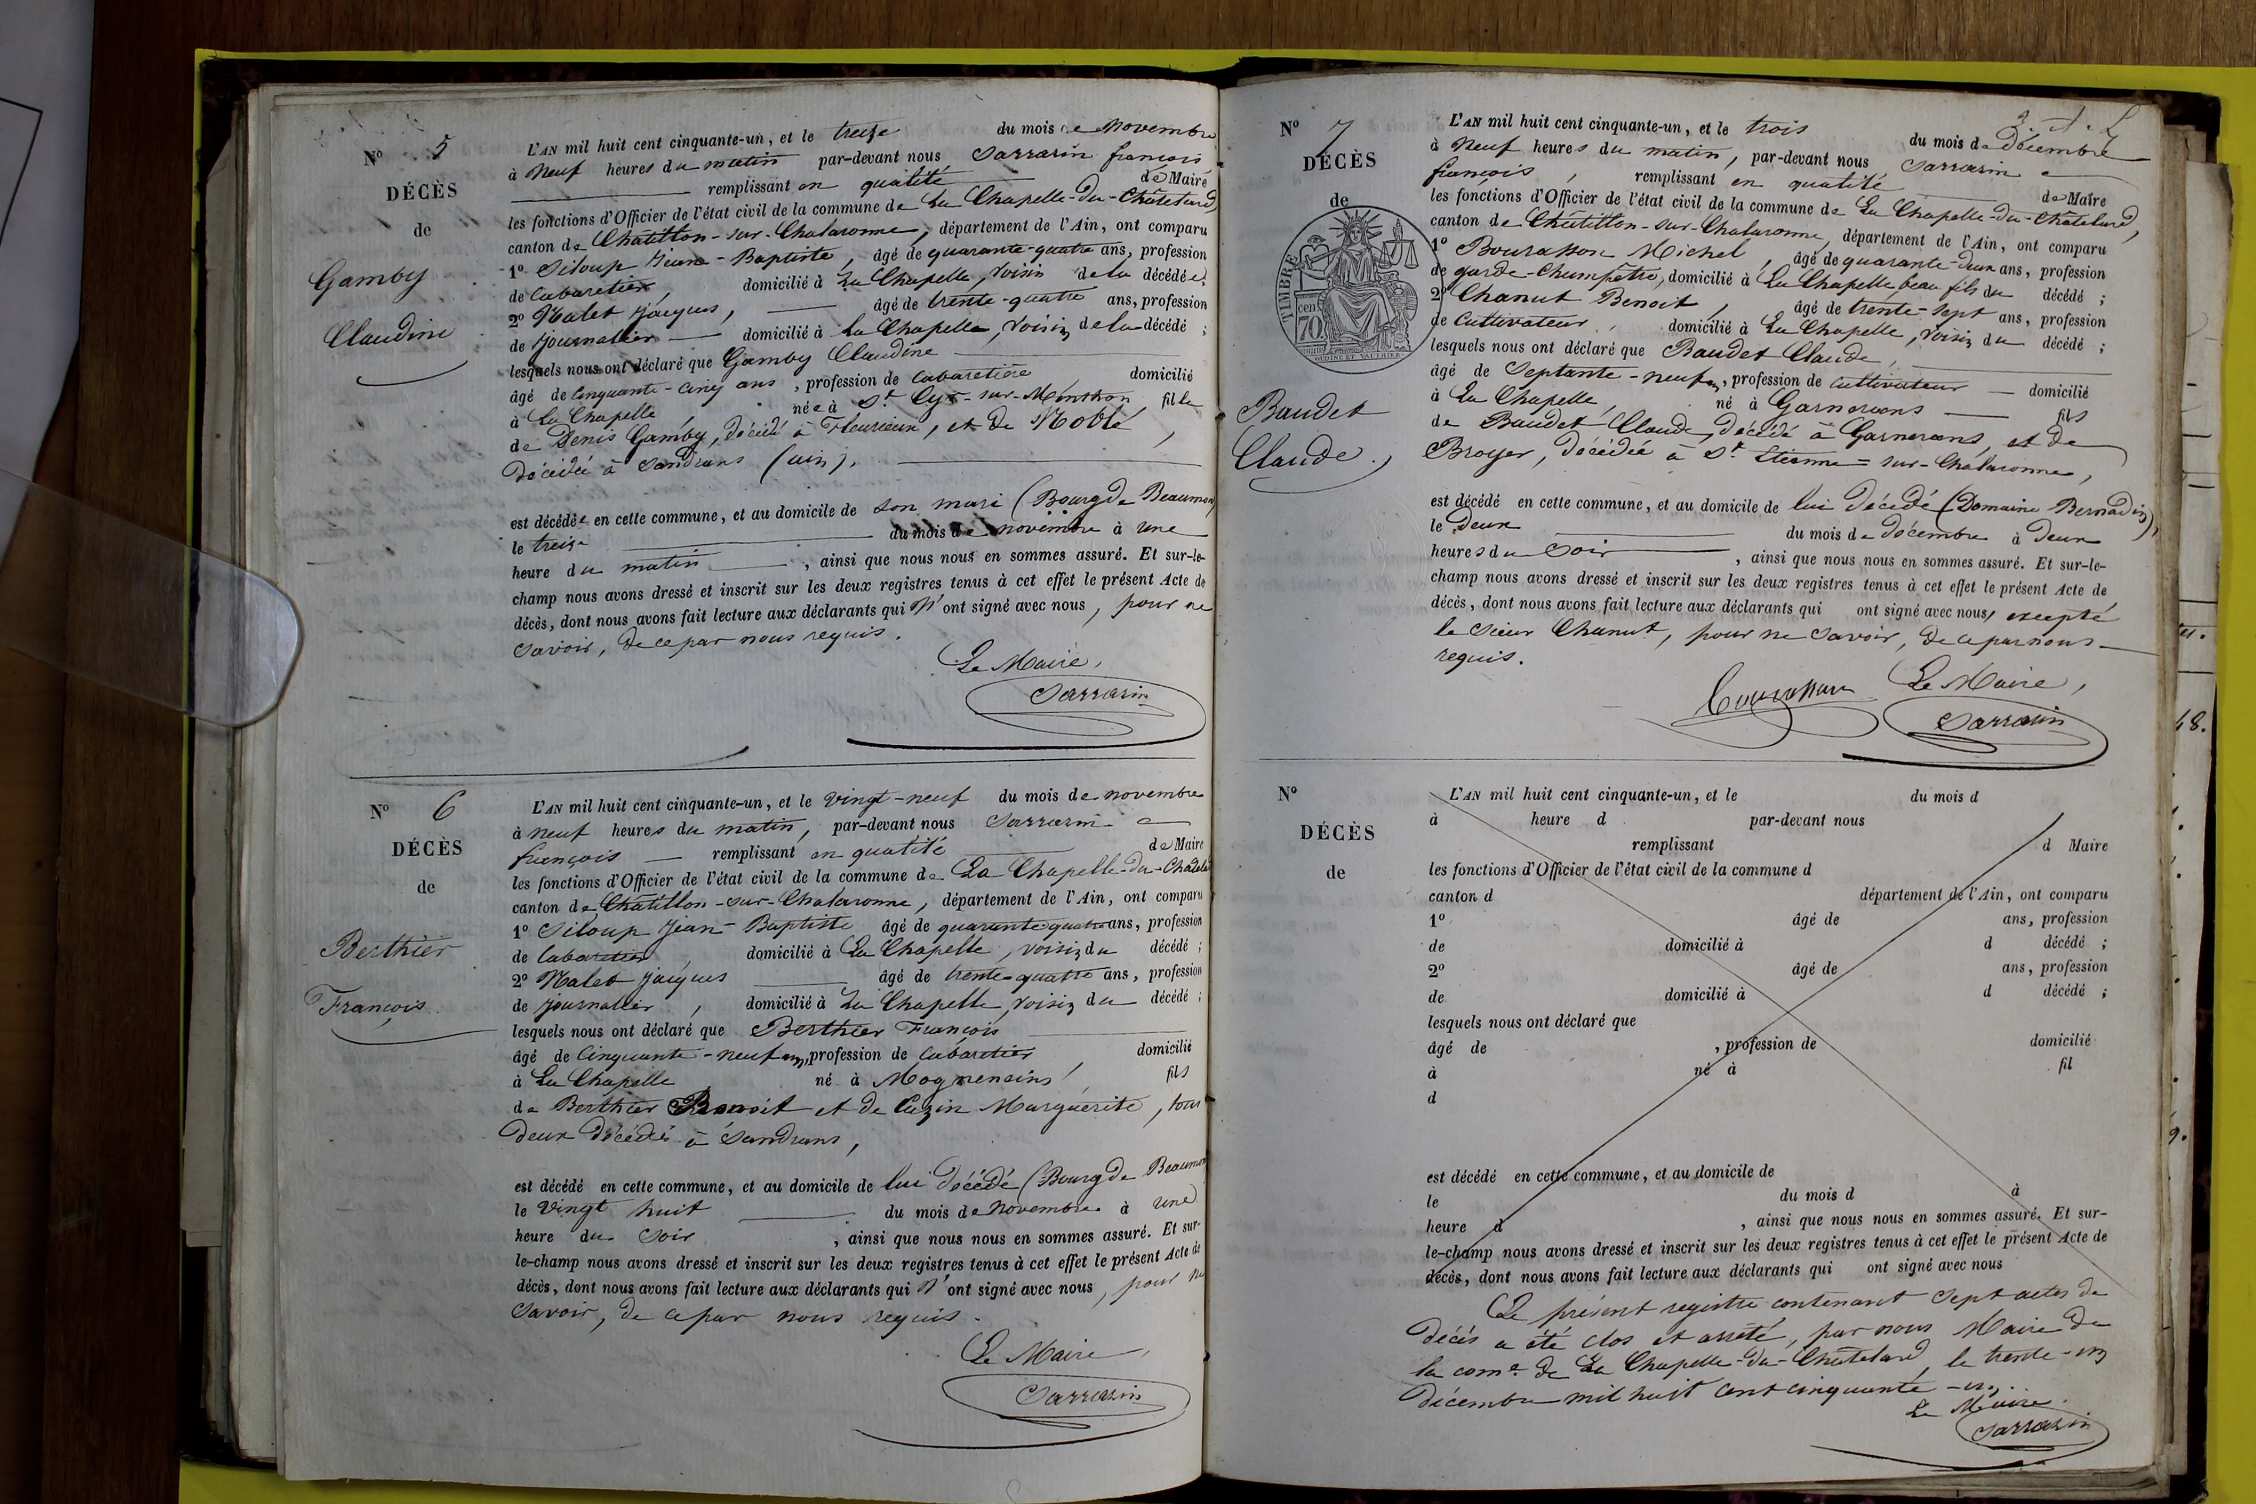 N° 5
DÉCÈS
de
Gamby
Claudine
L'AN mil huit cent cinquante-un, et le treize du mois de novembre
à neuf heures du matin par-devant nous Sarrasin françois
remplissant en qualité de Maire
les fonctions d'Officier de l'état civil de la commune de La Chapelle-du-Châtelard,
canton de Châtillon-sur-Chalaronne, département de l'Ain, ont comparu
1° Siloup Jean-Baptiste, âgé de quarante-quatre ans, profession
de Cabaretier, domicilié à La Chapelle, voisin de la décédée;
2° Malet Jacques, âgé de trente-quatre ans, profession
de Journalier domicilié à La Chapelle, voisin de la décédé ;
lesquels nous ont déclaré que Gamby Claudine
âgé de Cinquante-cinq ans, profession de Cabaretière domicilié
à La Chapelle née à St Cyr-sur-Menthon fille
de Denis Gamby, décédé à Fleurieux, et de Noblé,
décédée à Sandrans (ain),
est décédée en cette commune, et au domicile de son mari (Bourg de Beaumon
le treize du mois de novembre à une
heure du matin, ainsi que nous nous en sommes assuré. Et sur-le-
champ nous avons dressé et inscrit sur les deux registres tenus à cet effet le présent Acte de
décès, dont nous avons fait lecture aux déclarants qui n'ont signé avec nous, pour ne
savoir, de ce par nous requis.
Le Maire,
Sarrasin
N° 6
DÉCÈS
de
Berthier
François
L'AN mil huit cent cinquante-un, et le vingt-neuf du mois de novembre
à neuf heures du matin, par-devant nous Sarrasin
françois remplissant en qualité de Maire
les fonctions d'Officier de l'état civil de la commune de La Chapelle-du-Châtela
canton de Châtillon-sur-Chalaronne, département de l'Ain, ont comparu
1° Siloup Jean-Baptiste âgé de quarante quatre ans, profession
de Cabaretier, domicilié à La Chapelle, voisin du décédé ;
2° Malet Jacques âgé de trente-quatre ans, profession
de Journalier, domicilié à La Chapelle, voisin du décédé ;
lesquels nous ont déclaré que Berthier François
âgé de Cinquante-neuf ans, profession de Cabaretier, domicilié
à La Chapelle né à Mogneneins, fils
de Berthier Benoit et de Cuzin Marguerite, tous
deux décédés à Sandrans,
est décédé en cette commune, et au domicile de lui décédé (Bourg de Beaumon
le vingt huit du mois de novembre à une
heure du soir, ainsi que nous nous en sommes assuré. Et sur-
le-champ nous avons dressé et inscrit sur les deux registres tenus à cet effet le présent Acte de
décès, dont nous avons fait lecture aux déclarants qui n'ont signé avec nous, pour ne
savoir, de ce par nous requis.
Le Maire,
Sarrasin
N° 7
DÉCÈS
de
TIMBRE
70 cen
Baudet
Claude.
L'AN mil huit cent cinquante-un, et le trois du mois de Décembre
à neuf heures du matin, par-devant nous Sarrasin
françois, remplissant en qualité de Maire
les fonctions d'Officier de l'état civil de la commune de La Chapelle-du-Châtelard,
canton de Châtillon-sur-Chalaronne, département de l'Ain, ont comparu
1° Bourasson Michel, âgé de quarante-deux ans, profession
de garde-champêtre, domicilié à La Chapelle beau fils du décédé ;
2° Chanut Benoit, âgé de trente-sept ans, profession
de Cultivateur, domicilié à La Chapelle, voisin du décédé ;
lesquels nous ont déclaré que Baudet Claude,
âgé de Septante-neuf ans, profession de cultivateur domicilié
à La Chapelle, né à Garnerans fils
de Baudet Claude, décédé à Garnerans, et de
Broyer, décédée à St Etienne-sur-Chalaronne,
est décédé en cette commune, et au domicile de lui décédé (Domaine Bernadin),
le deux du mois de décembre à deux
heures du soir, ainsi que nous nous en sommes assuré. Et sur-le-
champ nous avons dressé et inscrit sur les deux registres tenus à cet effet le présent Acte de
décès, dont nous avons fait lecture aux déclarants qui ont signé avec nous, excepté
le sieur Chanut, pour ne savoir, de ce par nous
requis.
Le Maire,
Sarrasin
N°
DÉCÈS
de
L'AN mil huit cent cinquante-un, et le du mois d
à heure d par-devant nous
remplissant d Maire
les fonctions d'Officier de l'état civil de la commune d
canton d département de l'Ain, ont comparu
1° âgé de ans, profession
de domicilié à d décédé ;
2° âgé de ans, profession
de domicilié à d décédé ;
lesquels nous ont déclaré que
âgé de , profession de domicilié
à né à fil
d
est décédé en cette commune, et au domicile de
le du mois d à
heure d , ainsi que nous nous en sommes assuré. Et sur-
le-champ nous avons dressé et inscrit sur les deux registres tenus à cet effet le présent Acte de
décès, dont nous avons fait lecture aux déclarants qui ont signé avec nous
Le présent registre contenant sept actes de
décès a été clos et arrêté, par nous Maire de
la come de La Chapelle-du-Châtelard, le trente-un
décembre mil huit cent cinquante-un.
Le Maire.
Sarrasin
48.
9.